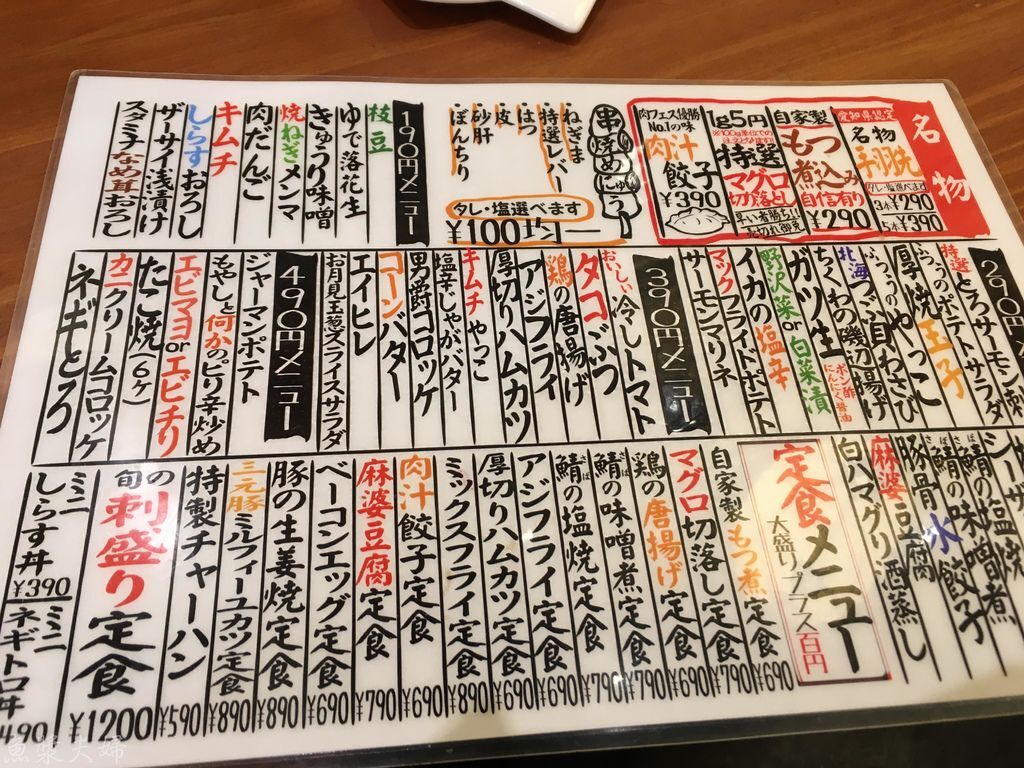 名物
愛知県認定
名物
手羽先
タレ・塩選べます
3本¥290
5本¥390
自家製
もつ煮込み
自信有り
¥290
1g5円
※100g単位での
特選
マグロ
切り落とし
早い者勝ち!!
売切れ御免
肉フェス優勝
No.1の味
肉汁
餃子
¥390
串焼めにゅう
ねぎま
特選レバー
はつ
皮
砂肝
ぼんちり
タレ・塩選べます
¥100
190円メニュー
枝豆
ゆで落花生
きゅうり味噌
焼ねぎメンマ
肉だんご
キムチ
しらすおろし
ザーサイ浅漬け
スタミナなめ茸おろし
290円メ
特選とろサーモン刺
ふつうのポテトサラダ
厚焼玉子
ふつうのやっこ
北海つぶ貝わさび
ちくわの磯辺揚げ
ガツ生
ポン酢
にんにく醤油
野沢菜or白菜漬
イカの塩辛
マックフライドポテト
サーモンマリネ
390円メニュー
おいしい冷しトマト
タコぶつ
鶏の唐揚げ
アジフライ
厚切りハムカツ
キムチやっこ
塩辛じゃがバター
男爵コロッケ
コーンバター
エイヒレ
お月見玉葱スライスサラダ
490円メニュー
ジャーマンポテト
もやしと何かのピリ辛炒め
エビマヨorエビチリ
たこ焼(6ケ)
カニクリームコロッケ
ネギとろ
シーザ
鯖の塩焼
鯖の味噌煮
豚骨水餃子
麻婆豆腐
白ハマグリ酒蒸し
定食メニュー
大盛りプラス百円
自家製もつ煮定食
¥690
マグロ切落し定食
¥790
鶏の唐揚げ定食
¥690
鯖の味噌煮定食
¥790
鯖の塩焼定食
¥790
アジフライ定食
¥690
厚切りハムカツ定食
¥690
ミックスフライ定食
¥890
肉汁餃子定食
¥690
麻婆豆腐定食
¥790
ベーコンエッグ定食
¥690
豚の生姜焼定食
¥890
三元豚ミルフィーユカツ定食
¥890
特製チャーハン
¥590
旬の刺盛り定食
¥1200
ミニしらす丼
¥390
ミニネギトロ丼
490
魚漿夫婦